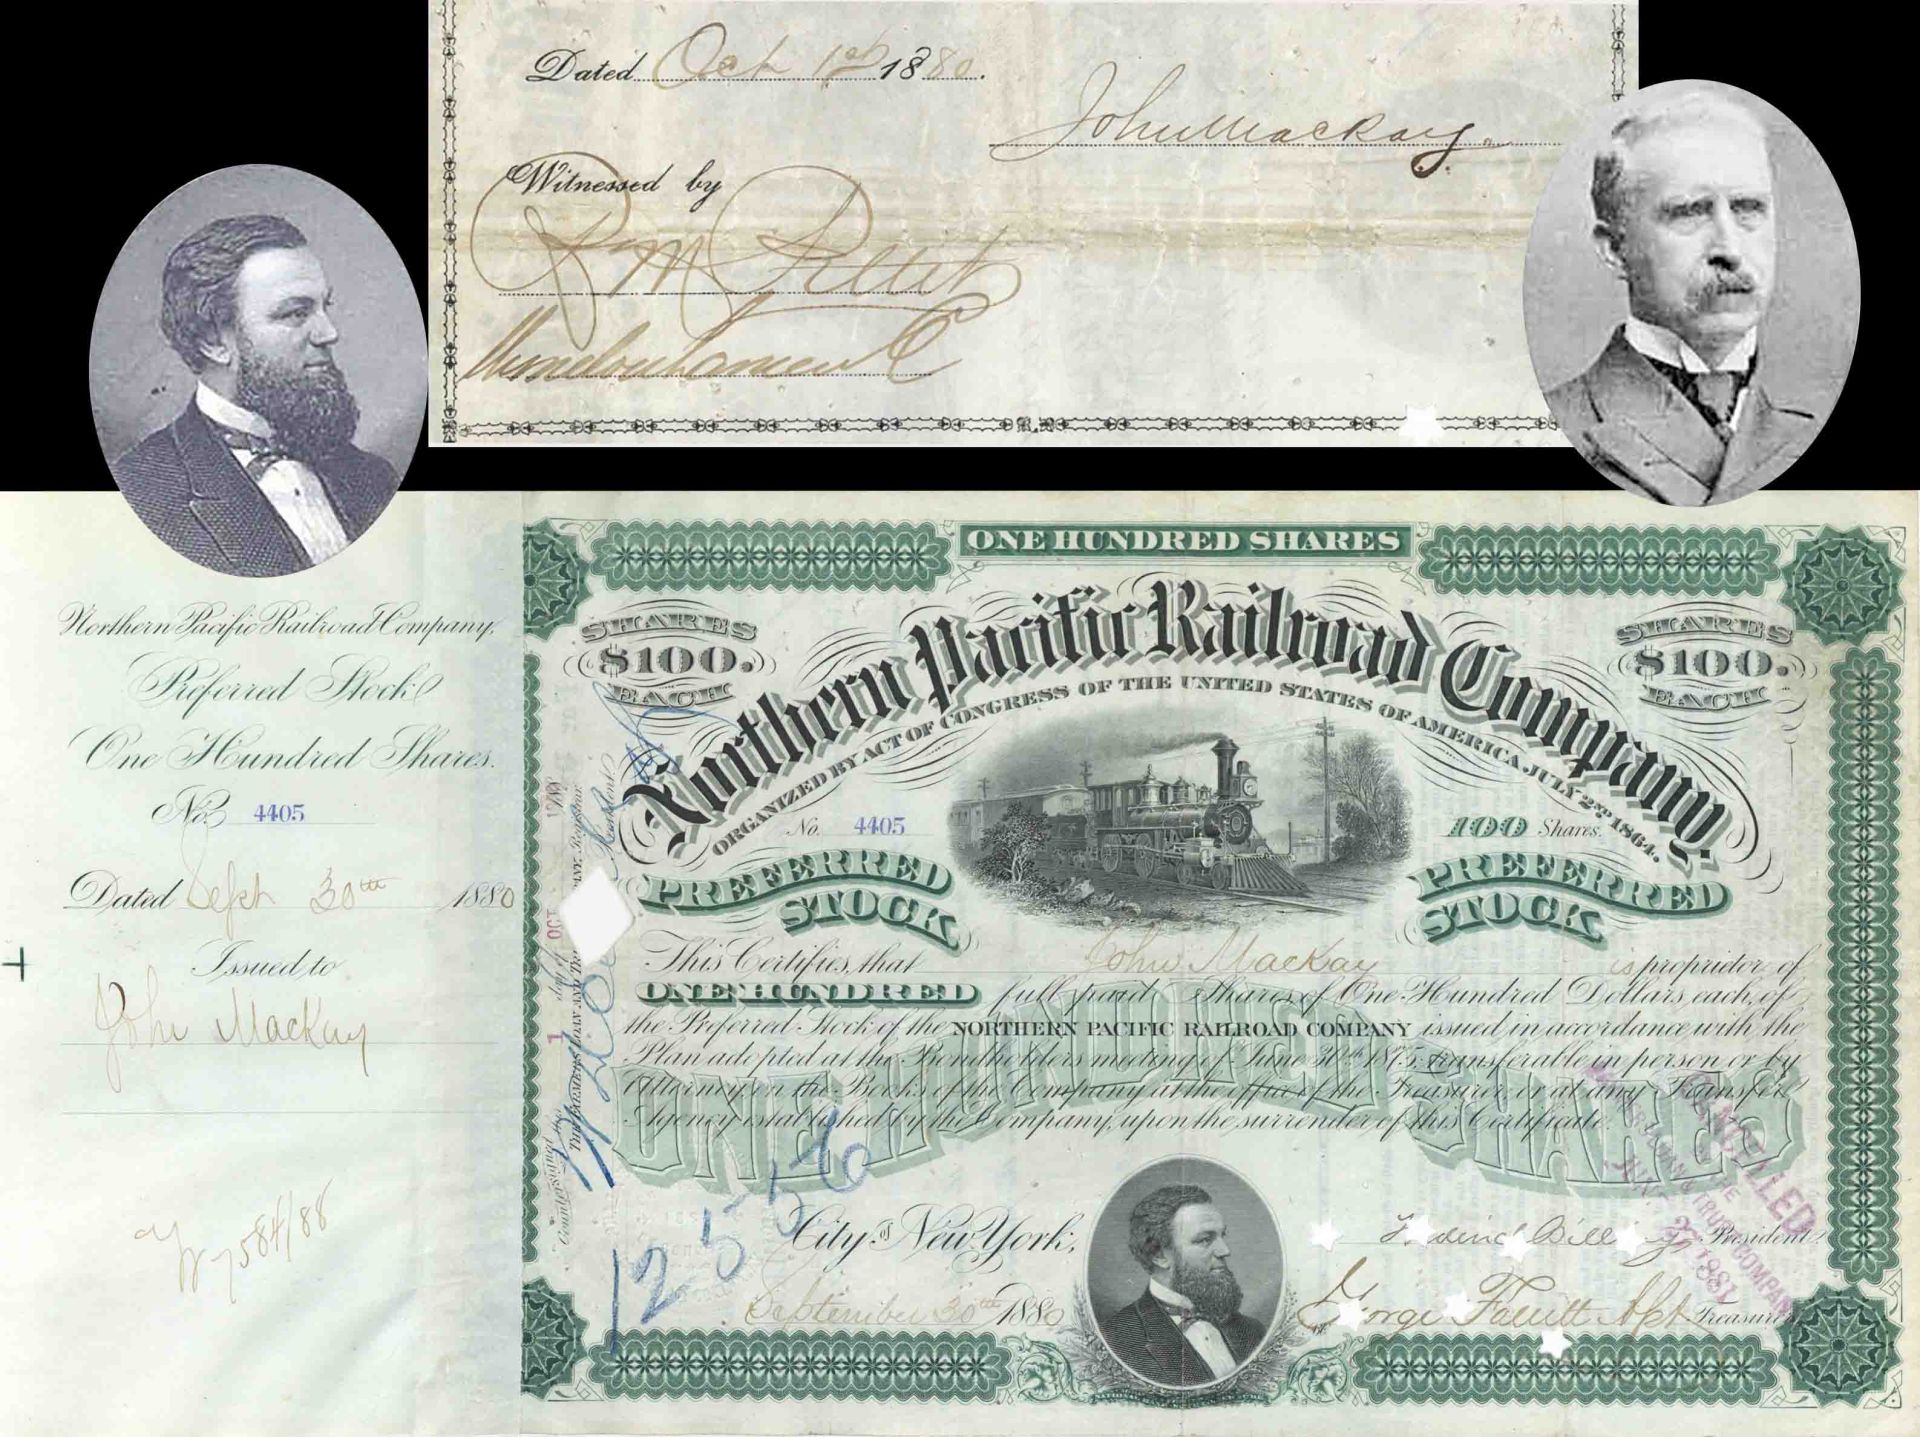 Dated Oct 1st 1880.
John Mackay
Witnessed by
Northern Pacific Railroad Company.
Preferred Stock
One Hundred Shares.
No. 4405
Dated Sept 30th 1880
Issued to
John MacKay
7584/88
ONE HUNDRED SHARES
SHARES $100. EACH
SHARES $100. EACH
Northern Pacific Railroad Company.
ORGANIZED BY ACT OF CONGRESS OF THE UNITED STATES OF AMERICA, JULY 2ND 1864.
No. 4405
100 Shares.
PREFERRED STOCK
PREFERRED STOCK
This Certifies, that John MacKay is proprietor of
ONE HUNDRED full paid Shares of One Hundred Dollars each, of
the Preferred Stock of the NORTHERN PACIFIC RAILROAD COMPANY issued in accordance with the
Plan adopted at the Bondholders meeting of June 30th 1875, transferable in person or by
Attorney, on the Books of the Company at the office of the Treasurer, or at any Transfer
Agency established by the Company, upon the surrender of this Certificate.
ONE HUNDRED SHARES
City of New York,
September 30th 1880
Frederick Billings President
George Treasurer
Countersigned this 1 day of OCT 1880
THE FARMERS' LOAN AND TRUST COMPANY, Registrar.
President
12556
CANCELLED